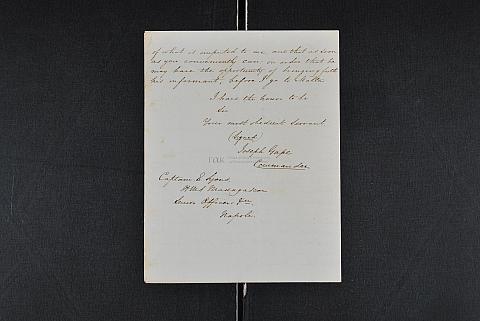 of what is imputed to me, and that as soon
as you conveniently can, in order that he
may have the opportunity of bringing forth
his informant, before I go to Malta.
I have the honor to be
Sir
Your most obedient Servant.
(Signed)
Joseph Gape
Commander
Captain E Lyons,
H.M.S Madagascar
Senior Officer &c
Napoli.